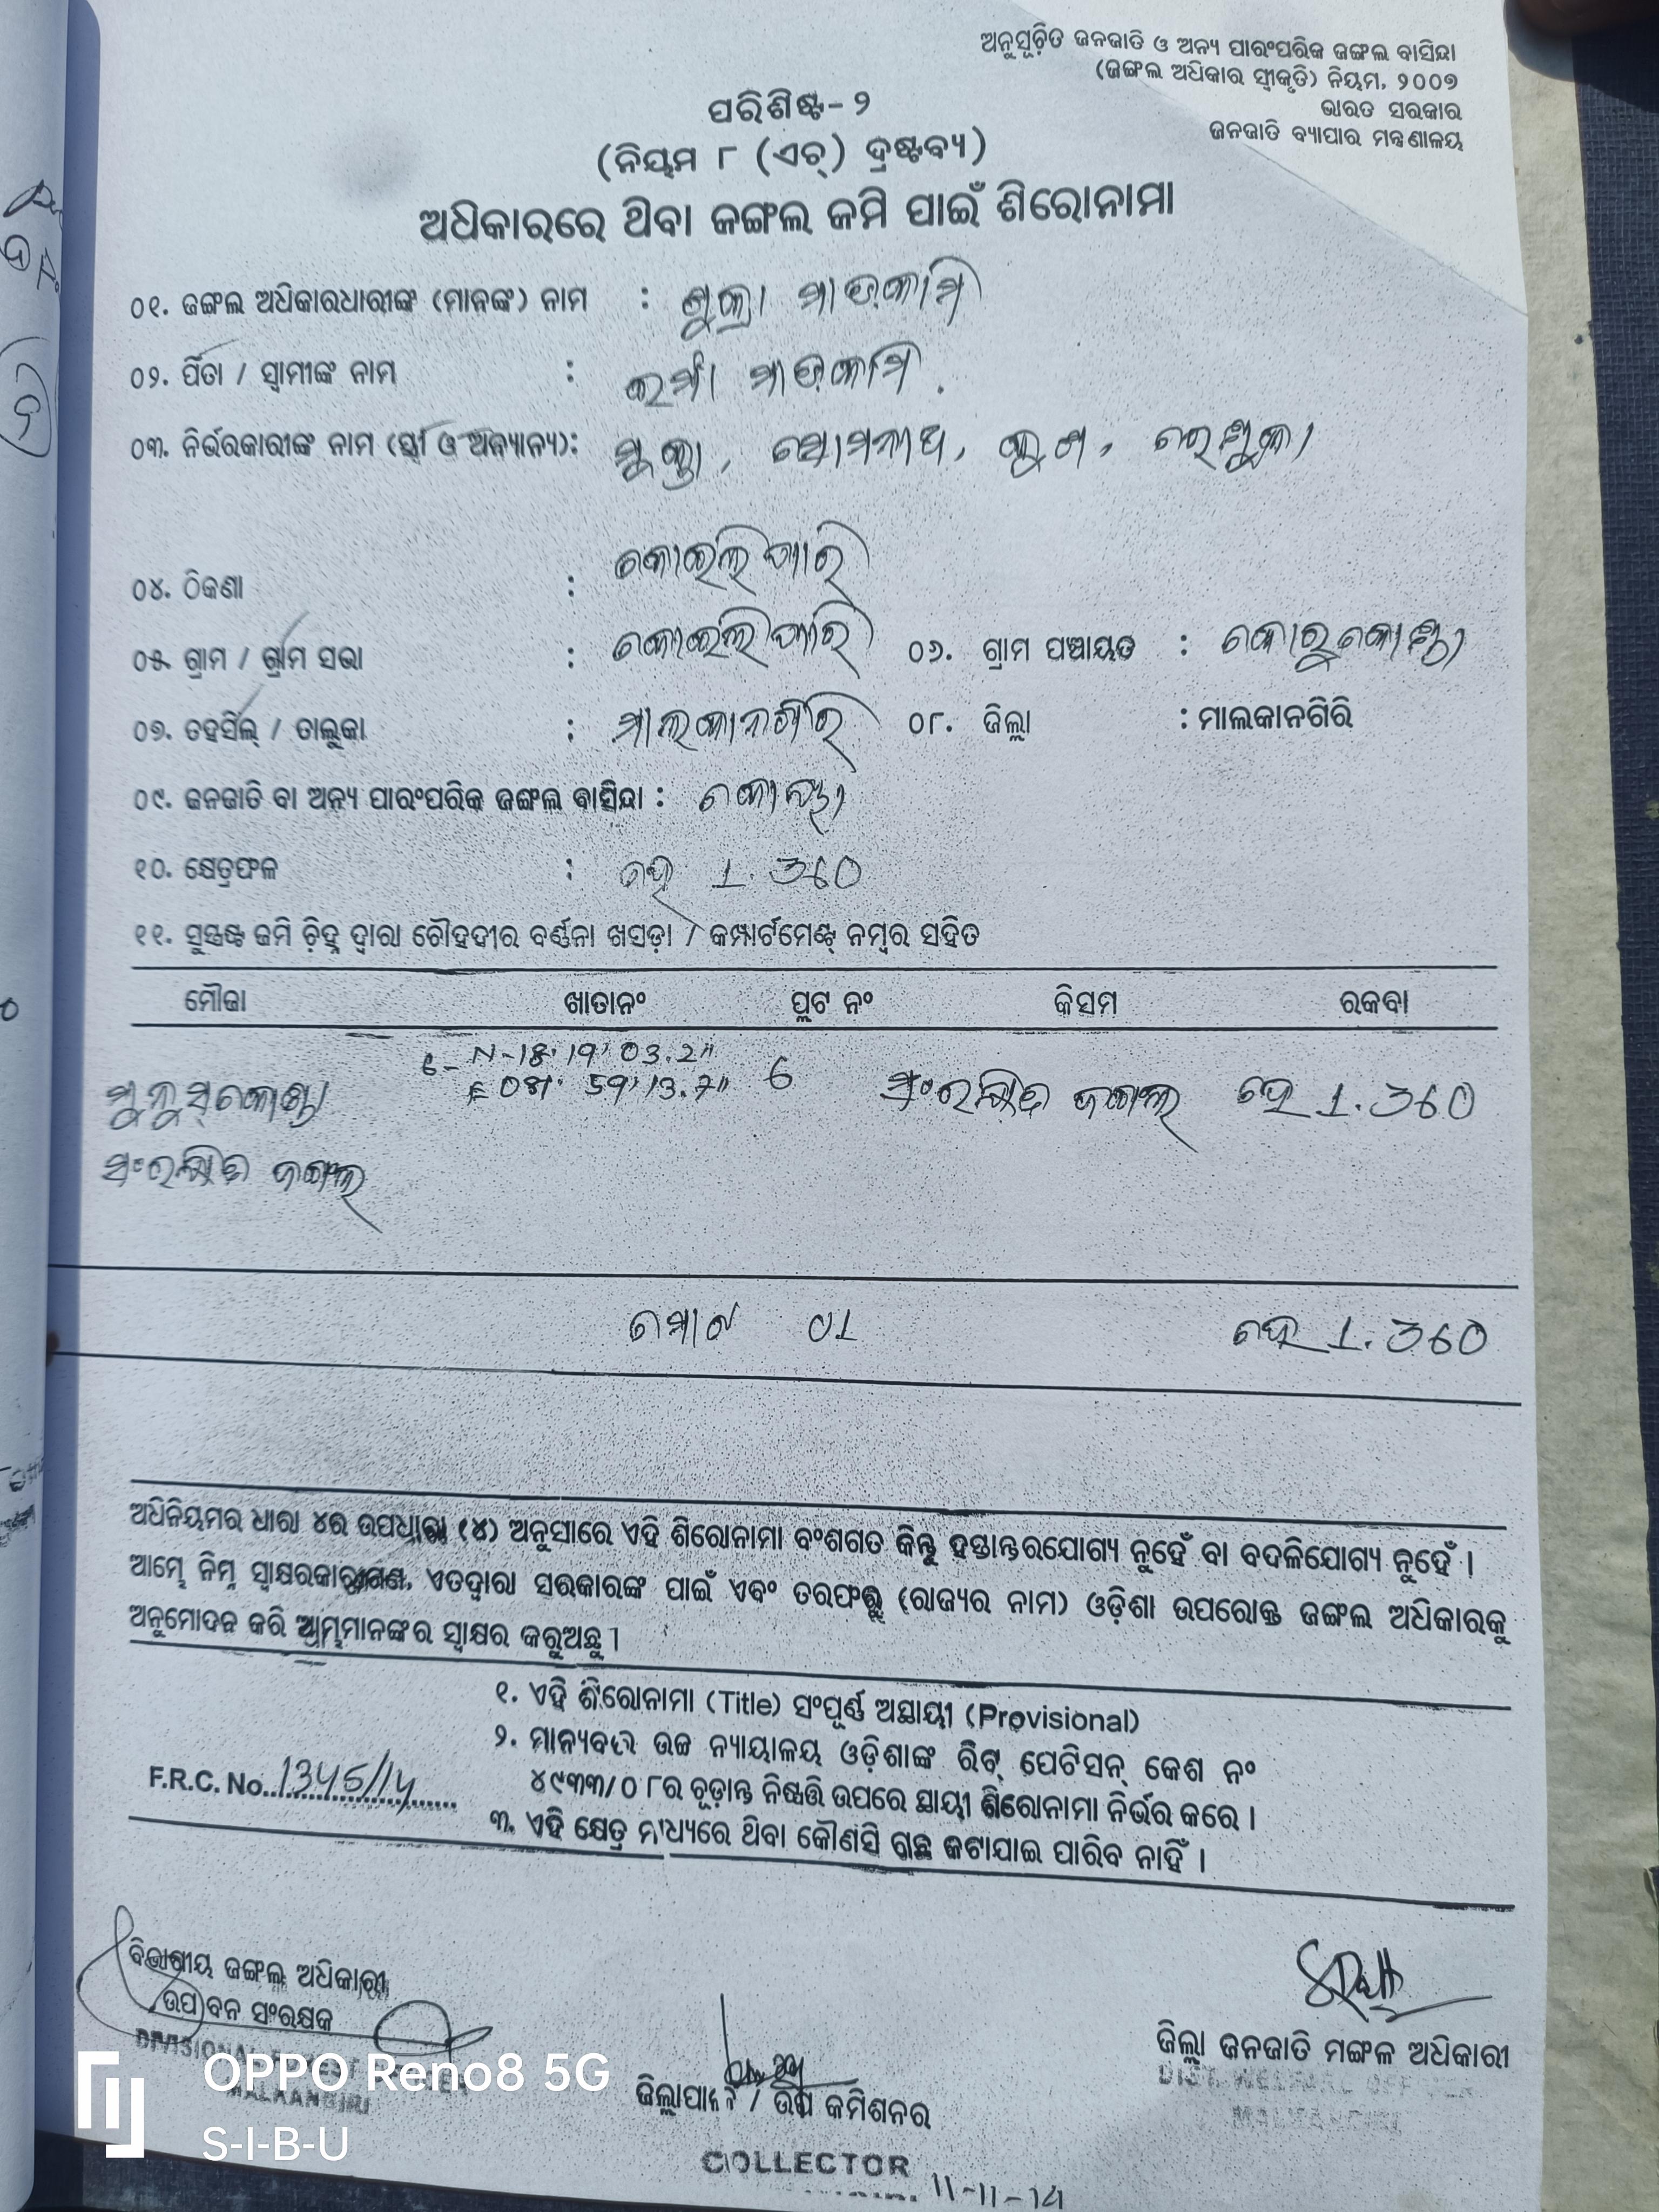 ଅନୁସୂଚିତ ଜନଜାତି ଓ ଅନ୍ୟ ପାରଂପରିକ ଜଙ୍ଗଲ ବାସିନ୍ଦା
(ଜଙ୍ଗଲ ଅଧିକାର ସ୍ୱୀକୃତି) ନିୟମ, ୨୦୦୭
ଭାରତ ସରକାର
ଜନଜାତି ବ୍ୟାପାର ମନ୍ତ୍ରଣାଳୟ
ପରିଶିଷ୍ଟ-୨
(ନିୟମ ୮ (ଏଚ୍) ଦ୍ରଷ୍ଟବ୍ୟ)
ଅଧିକାରରେ ଥିବା ଜଙ୍ଗଲ ଜମି ପାଇଁ ଶିରୋନାମା
୦୧. ଜଙ୍ଗଲ ଅଧିକାରଧାରୀଙ୍କ (ମାନଙ୍କ) ନାମ : ଶୁକ୍ରା ମାଡ଼କାମି
୦୨. ପିତା / ସ୍ୱାମୀଙ୍କ ନାମ : ଇର୍ମା ମାଡ଼କାମି
୦୩. ନିର୍ଭରକାରୀଙ୍କ ନାମ (ସ୍ତ୍ରୀ ଓ ଅନ୍ୟାନ୍ୟ): ମୁକ୍ତା, ସୋମନାଥ,
୦୪. ଠିକଣା :
୦୫. ଗ୍ରାମ / ଗ୍ରାମ ସଭା : ୦୬. ଗ୍ରାମ ପଞ୍ଚାୟତ : କୋରୁକୋଣ୍ଡା
୦୭. ତହସିଲ୍ / ତାଲୁକା : ମାଲକାନଗିରି ୦୮. ଜିଲ୍ଲା : ମାଲକାନଗିରି
୦୯. ଜନଜାତି ବା ଅନ୍ୟ ପାରଂପରିକ ଜଙ୍ଗଲ ବାସିନ୍ଦା : କୋୟା
୧୦. କ୍ଷେତ୍ରଫଳ : ହେ 1.360
୧୧. ସୁସ୍ପଷ୍ଟ ଜମି ଚିହ୍ନ ଦ୍ୱାରା ଚୌହଦୀର ବର୍ଣ୍ଣନା ଖସଡ଼ା / କମ୍ପାର୍ଟମେଣ୍ଟ୍ ନମ୍ବର ସହିତ
ମୌଜା ଖାତାନଂ ପ୍ଲଟ ନଂ କିସମ ରକବା
6- N-18° 19' 03.2"
E 081° 59' 13.7" 6 ସଂରକ୍ଷିତ ଜଙ୍ଗଲ ହେ 1.360
ସଂରକ୍ଷିତ ଜଙ୍ଗଲ
ମୋଟ 01 ହେ 1.360
ଅଧିନିୟମର ଧାରା ୪ର ଉପଧାରା (୪) ଅନୁସାରେ ଏହି ଶିରୋନାମା ବଂଶଗତ କିନ୍ତୁ ହସ୍ତାନ୍ତରଯୋଗ୍ୟ ନୁହେଁ ବା ବଦଳିଯୋଗ୍ୟ ନୁହେଁ ।
ଆମ୍ଭେ ନିମ୍ନ ସ୍ୱାକ୍ଷରକାରୀଗଣ, ଏତଦ୍ୱାରା ସରକାରଙ୍କ ପାଇଁ ଏବଂ ତରଫରୁ (ରାଜ୍ୟର ନାମ) ଓଡ଼ିଶା ଉପରୋକ୍ତ ଜଙ୍ଗଲ ଅଧିକାରକୁ
ଅନୁମୋଦନ କରି ଆମ୍ଭମାନଙ୍କର ସ୍ୱାକ୍ଷର କରୁଅଛୁ ।
୧. ଏହି ଶିରୋନାମା (Title) ସଂପୂର୍ଣ୍ଣ ଅସ୍ଥାୟୀ (Provisional)
୨. ମାନ୍ୟବର ଉଚ୍ଚ ନ୍ୟାୟାଳୟ ଓଡ଼ିଶାଙ୍କ ରିଟ୍ ପେଟିସନ୍ କେଶ ନଂ
୪୯୩୩/୦୮ର ଚୂଡ଼ାନ୍ତ ନିଷ୍ପତ୍ତି ଉପରେ ସ୍ଥାୟୀ ଶିରୋନାମା ନିର୍ଭର କରେ ।
F.R.C. No. 1345/14
୩. ଏହି କ୍ଷେତ୍ର ମଧ୍ୟରେ ଥିବା କୌଣସି ଗଛ କଟାଯାଇ ପାରିବ ନାହିଁ ।
ବିଭାଗୀୟ ଜଙ୍ଗଲ ଅଧିକାରୀ
ଉପ ବନ ସଂରକ୍ଷକ
DIVISIONAL FOREST
MALKANGIRI
ଜିଲ୍ଲାପାଳ / ଉପ କମିଶନର
COLLECTOR
11-11-14
ଜିଲ୍ଲା ଜନଜାତି ମଙ୍ଗଳ ଅଧିକାରୀ
OPPO Reno8 5G
S-I-B-U